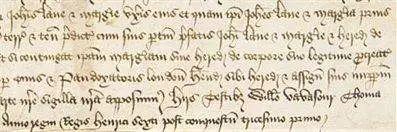 Johes lane & Margie Uxis eius et quam ipi Johes lane & Margia prius
terr & ten pdict cum suis ptin pfatis Johi lane & Margie & hered de
si contingat ipam Margiam sine hered de corpore suo legitime procreat
& Pandoxatoris london hend sibi hered & assign suis imppm
sigilla nra apposuim Hijs Testibz Willo Vavasour Thoma
Anno regni Regis henrici sexti post conquestu tricesimo primo